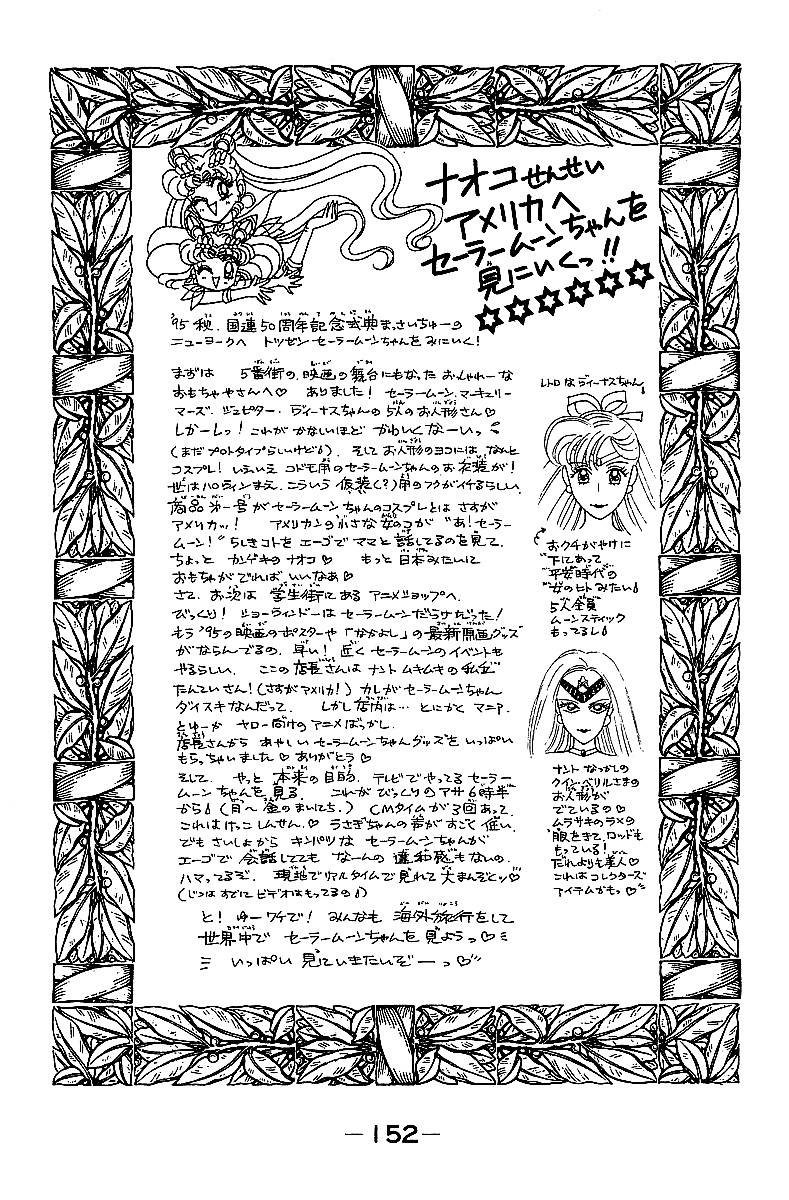 ナオコせんせい
アメリカへ
セーラームーンちゃんを
見にいくっ!!
'95秋、国連50周年記念式典まっさいちゅーの
ニューヨークへ トツゼン・セーラームーンちゃんをみにいく!
まずは 5番街の、映画の舞台にもなった おしゃれーな
おもちゃやさんへ♡ ありました! セーラームーン、マーキュリー
マーズ、ジュピター、ヴィーナスちゃんの5人のお人形さん♡
しかーしっ! これが かなしいほど かわいくなーいっ
(まだプロトタイプらしいけど)。そして お人形のヨコには、なんと
コスプレ! いえいえ コドモ用のセーラームーンちゃんのお衣装が!
世はハロウィンまえ、こういう 仮装く?)用のフクがイチるらしい。
商品第一号がセーラームーンちゃんのコスプレとは さすが
アメリカッ! アメリカンの小さな女のコが "あ!セーラー
ムーン!" らしきコトを エーゴで ママと 話してるのを見て、
ちょっと カンゲキの ナオコ♡ もっと 日本みたいに
おもちゃがでれば いいなあ♡
さて、お次は 学生街にある アニメショップへ、
びっくり! ショーウィンドーは セーラームーンだらけだった!
もう '95の映画のポスターや 「なかよし」の最新原画グッズ
がならんでるの。早い! 近く セーラームーンのイベントも
やるらしい。 ここの店長さんは ナント ムキムキの 私立
たんていさん!(さすがアメリカ!) カレがセーラームーンちゃん
ダイスキなんだって。 しかし店内は… とにかく マニア、
とゆーか ヤロー向けのアニメばっかし。
店長さんから あやしいセーラームーンちゃんグッズを いっぱい
もらっちゃいました♡ ありがとう♡
そして、 やっと 本来の目的、 テレビでやってる セーラー
ムーンちゃんを 見る。 これが びっくりのアサ6時半
から(月〜金のまいにち。) CMタイムが3回あって、
これはけっこしんせん。♡ うさぎちゃんの声がすごく低い、
でも さいしょから キンパツな セーラームーンちゃんが
エーゴで 会話してても なーんの 違和感もないの。
ハマってるぞ。 現地でリアルタイムで見れて 大まんぞくっ♡
(じつは すでに ビデオはもってるの)
と! ゆーワケで! みんなも 海外旅行をして
世界中で セーラームーンちゃんを 見ようっ♡
いっぱい 見ていきたいぞーっ♡
レトロなヴィーナスちゃん
おクチがやけに
下にあって
"平安時代の
女のヒトみたい
5人全員
ムーンスティック
もってるし
ナント なつかしの
クイン・ベリルさまの
お人形が
でているの♡
ムラサキのラメの
服をきて、ロッドも
もっている!
だれよりも美人♡
これは コレクターズ
アイテムかもっ♡
-152-